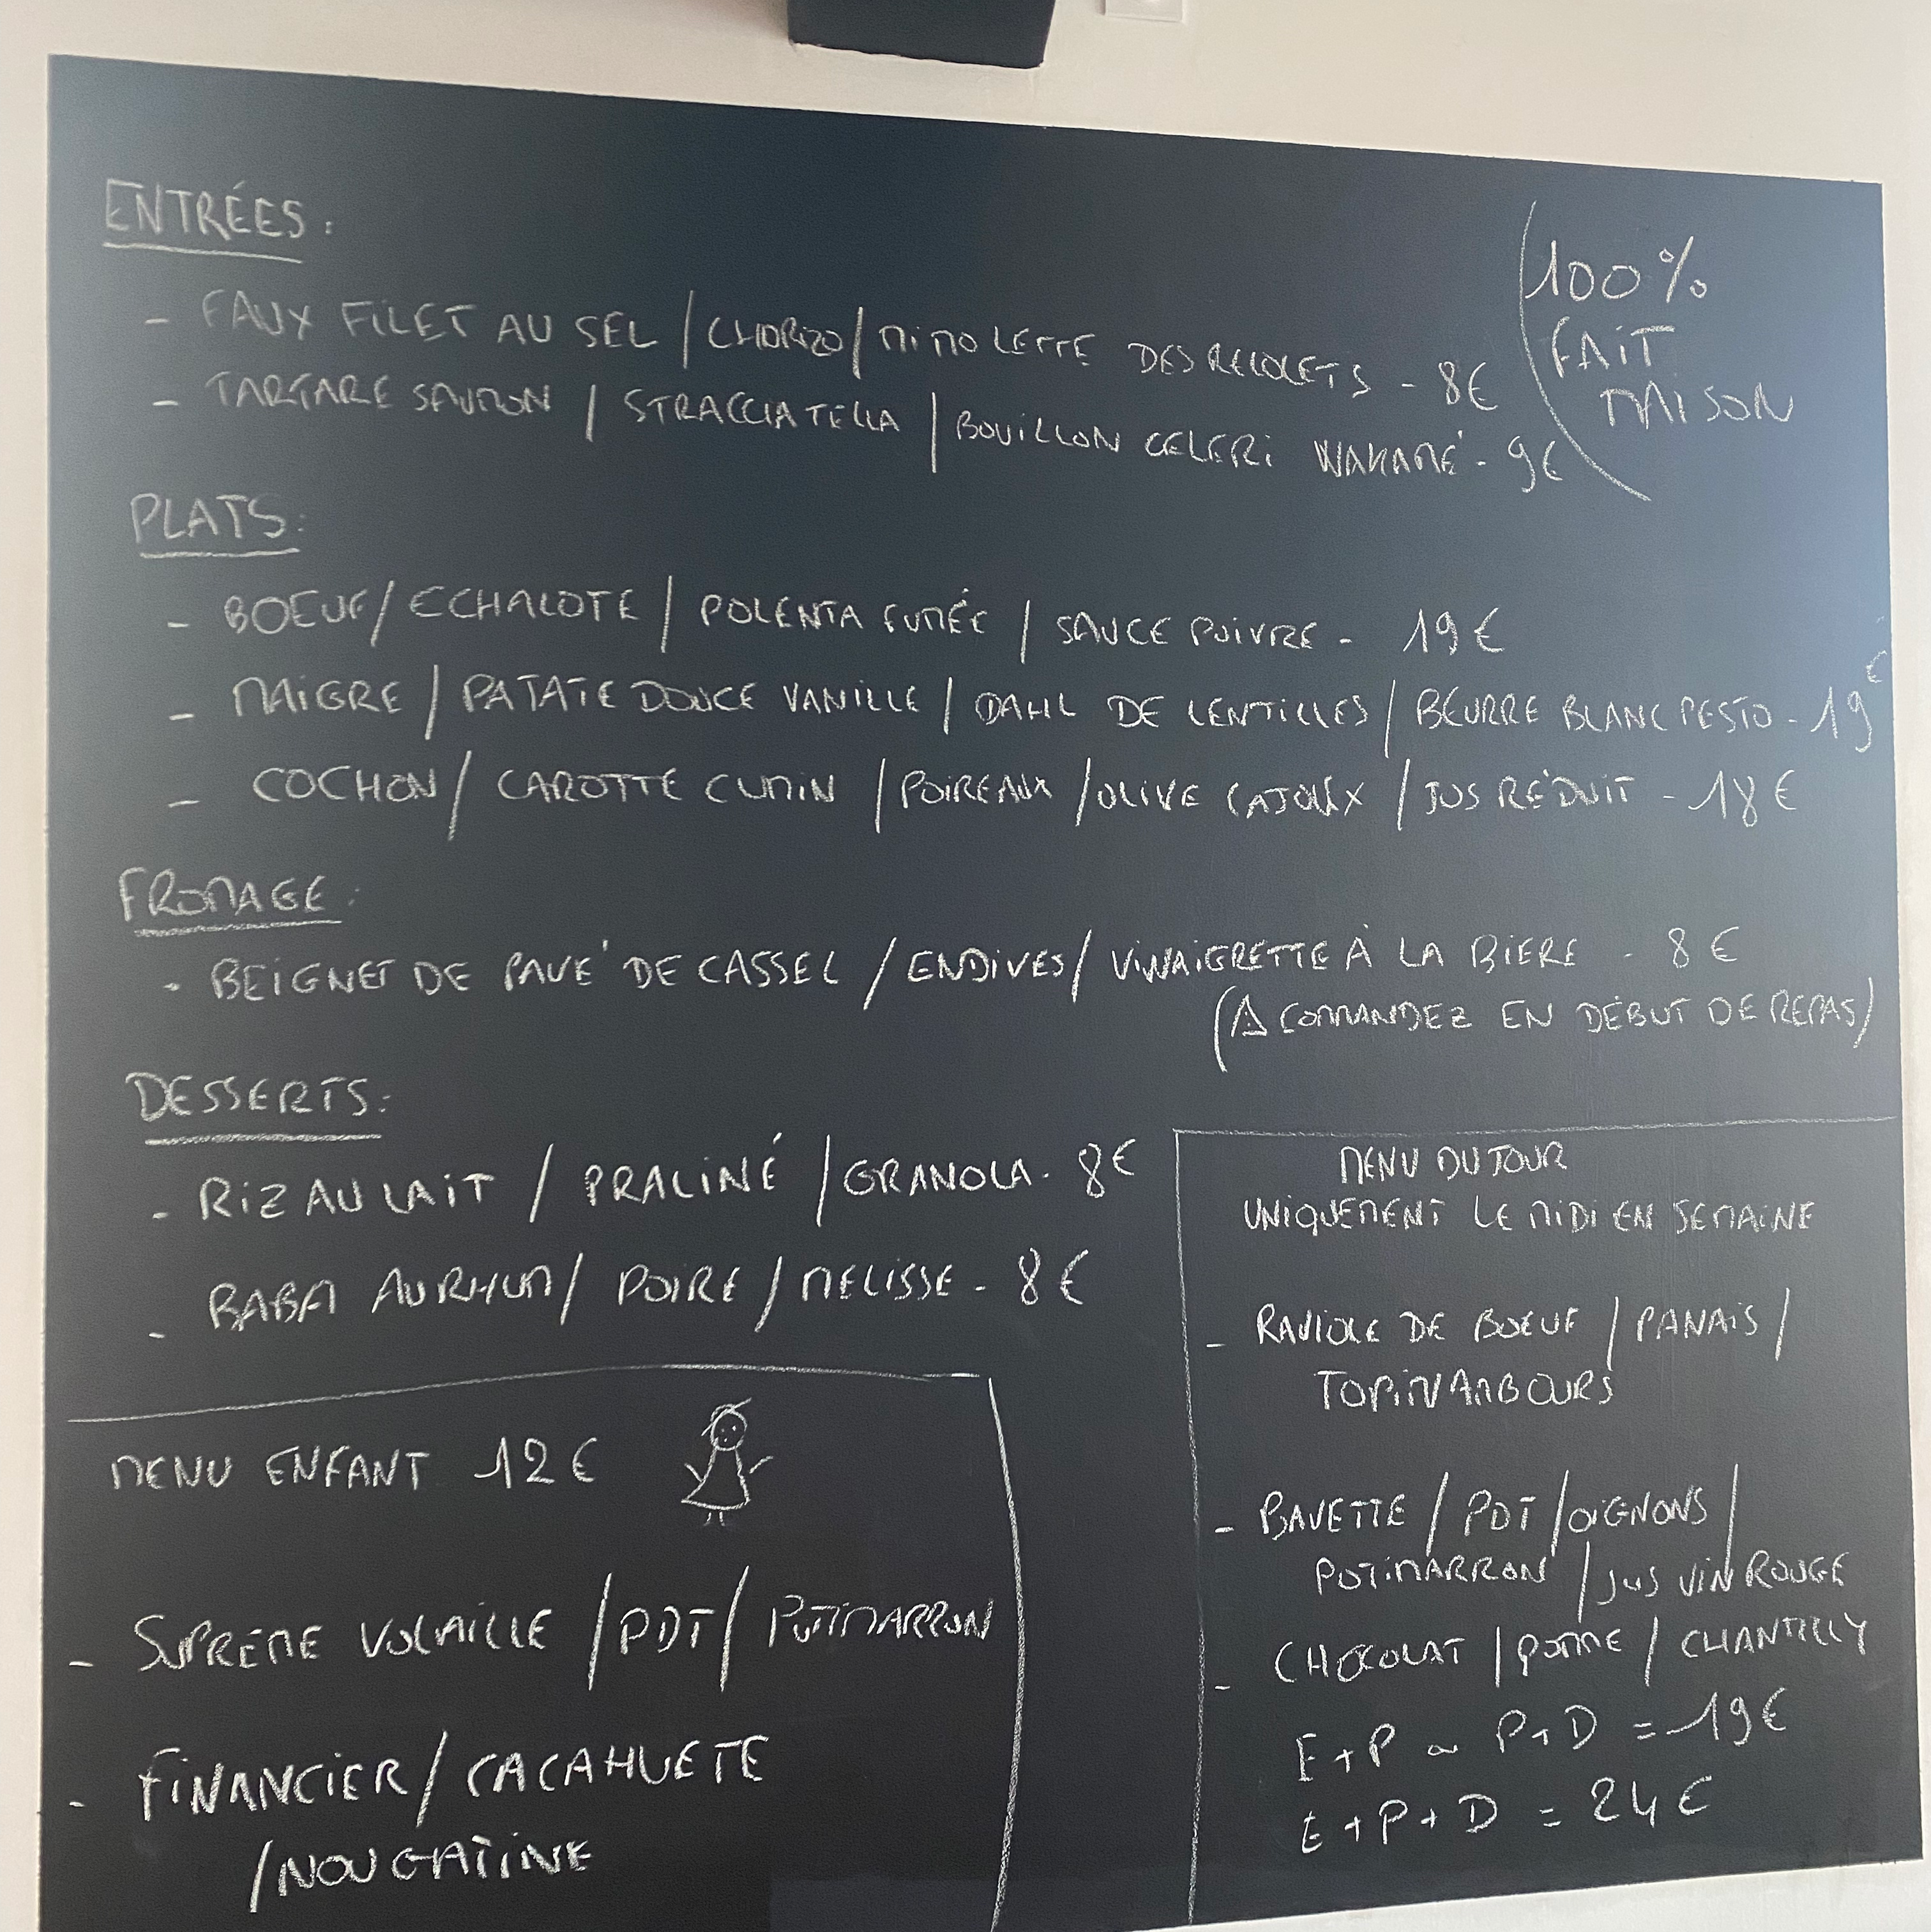 ENTRÉES :
- FAUX FILET AU SEL / CHORIZO / MIMOLETTE DES RECOLETS - 8€
- TARTARE SAUMON / STRACCIATELLA / BOUILLON CELERI WAKAMÉ - 9€
100%
FAIT
MAISON
PLATS :
- BOEUF / ECHALOTE / POLENTA FUMÉE / SAUCE POIVRE - 19€
- MAIGRE / PATATE DOUCE VANILLE / DAHL DE LENTILLES / BEURRE BLANC PESTO - 19€
- COCHON / CAROTTE CUMIN / POIREAUX / OLIVE CAJOUX / JUS RÉDUIT - 18€
FROMAGE :
- BEIGNET DE PAVÉ DE CASSEL / ENDIVES / VINAIGRETTE À LA BIERE - 8€
(A COMMANDEZ EN DÉBUT DE REPAS)
DESSERTS :
- RIZ AU LAIT / PRALINÉ / GRANOLA - 8€
- BABA AU RHUM / POIRE / MELISSE - 8€
MENU ENFANT 12€
- SUPRÊME VOLAILLE / PDT / POTIMARRON
- FINANCIER / CACAHUETE
/ NOUGATINE
MENU DU JOUR
UNIQUEMENT LE MIDI EN SEMAINE
- RAVIOLE DE BOEUF / PANAIS /
TOPINAMBOURS
- BAVETTE / PDT / OIGNONS /
POTIMARRON / JUS VIN ROUGE
- CHOCOLAT / POMME / CHANTILLY
E+P ou P+D = 19€
E+P+D = 24€